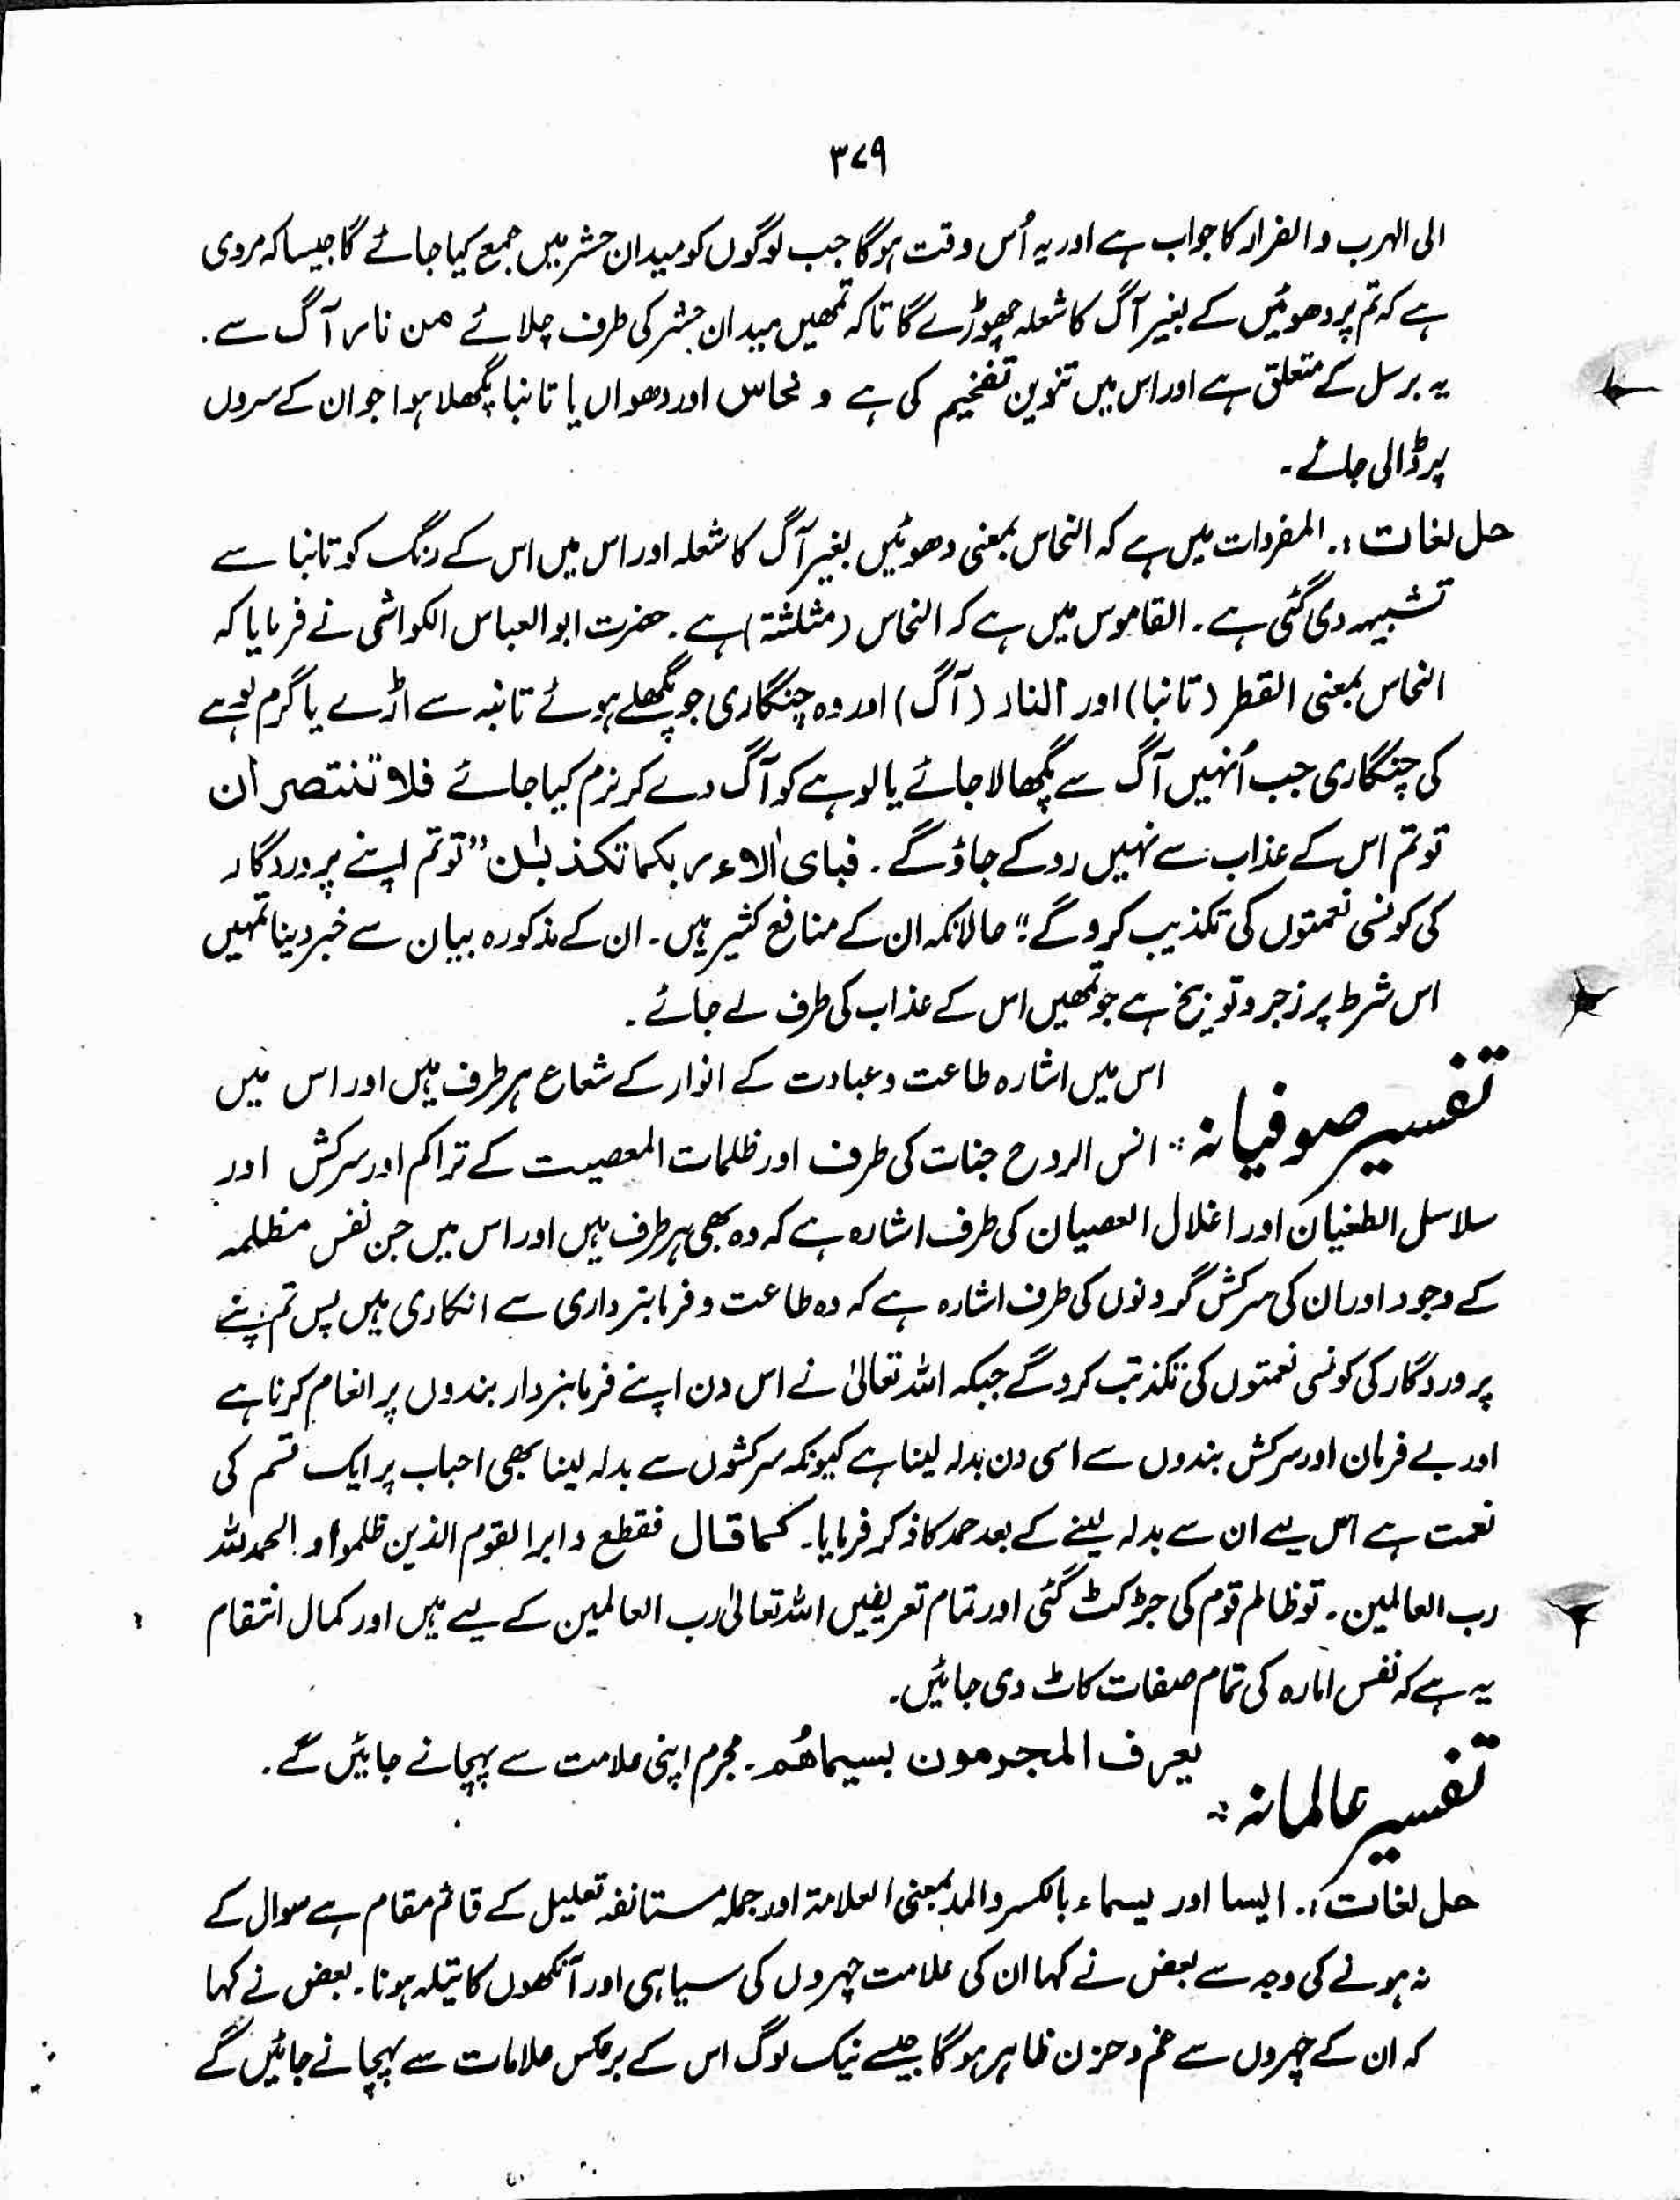 ۳۷۹
الی الہرب و الفرار کا جواب ہے اور یہ اُس وقت ہوگا جب لوگوں کو میدان حشر میں جمع کیا جائے گا جیسا کہ مروی
ہے کہ تم پر دھوئیں کے بغیر آگ کا شعلہ چھوڑے گا تاکہ تمھیں میدان حشر کی طرف چلائے من نار آگ سے۔
یہ برسل کے متعلق ہے اور اس میں تنوین تفخیم کی ہے و نحاس اور دھواں یا تانبا پگھلا ہوا جو ان کے سروں
پر ڈالی جائے۔
حل لغات :۔ المفردات میں ہے کہ النحاس بمعنی دھوئیں بغیر آگ کا شعلہ اور اس میں اس کے رنگ کو تانبا سے
تشبیہہ دی گئی ہے۔ القاموس میں ہے کہ النحاس (مثلثۃ) ہے۔ حضرت ابو العباس الکواشی نے فرمایا کہ
النحاس بمعنی القطر (تانبا) اور النار (آگ) اور وہ چنگاری جو پگھلے ہوئے تانبہ سے اڑے یا گرم لوہے
کی چنگاری جب اُنہیں آگ سے پگھالا جائے یا لوہے کو آگ دے کر نرم کیا جائے فلا تنتصران
تو تم اس کے عذاب سے نہیں روکے جاؤ گے۔ فبای اٰلاء ربکما تکذبٰن ”تو تم اپنے پروردگار
کی کونسی نعمتوں کی تکذیب کرو گے“ حالانکہ ان کے منافع کثیر ہیں۔ ان کے مذکورہ بیان سے خبر دینا تمہیں
اس شرط پر زجر و توبیخ ہے جو تمھیں اس کے عذاب کی طرف لے جائے۔
تفسیر صوفیانہ :
اس میں اشارہ طاعت و عبادت کے انوار کے شعاع ہر طرف ہیں اور اس میں
انس الروح جنات کی طرف اور ظلمات المعصیت کے تراکم اور سرکش اور
سلاسل الطغیان اور اغلال العصیان کی طرف اشارہ ہے کہ وہ بھی ہر طرف ہیں اور اس میں جن نفس مظلمہ
کے وجود اور ان کی سرکش گردنوں کی طرف اشارہ ہے کہ وہ طاعت و فرمانبرداری سے انکاری ہیں پس تم اپنے
پروردگار کی کونسی نعمتوں کی تکذیب کرو گے جبکہ اللہ تعالیٰ نے اس دن اپنے فرمانبردار بندوں پر انعام کرنا ہے
اور بے فرمان اور سرکش بندوں سے اسی دن بدلہ لینا ہے کیونکہ سرکشوں سے بدلہ لینا بھی احباب پر ایک قسم کی
نعمت ہے اس لیے ان سے بدلہ لینے کے بعد حمد کا ذکر فرمایا۔ کما قال فقطع دابر القوم الذین ظلموا و الحمد للہ
رب العالمین۔ تو ظالم قوم کی جڑ کٹ گئی اور تمام تعریفیں اللہ تعالیٰ رب العالمین کے لیے ہیں اور کمال انتقام
یہ ہے کہ نفس امارہ کی تمام صفات کاٹ دی جائیں۔
تفسیر عالمانہ :
یعرف المجرمون بسیماھُم۔ مجرم اپنی علامت سے پہچانے جائیں گے۔
حل لغات :۔ السیما اور سیماء بالکسر والمد بمعنی العلامۃ اور جملہ مستانفہ تعلیل کے قائم مقام ہے سوال کے
نہ ہونے کی وجہ سے بعض نے کہا ان کی علامت چہروں کی سیاہی اور آنکھوں کا نیلہ ہونا۔ بعض نے کہا
کہ ان کے چہروں سے غم و حزن ظاہر ہوگا جیسے نیک لوگ اس کے برعکس علامات سے پہچانے جائیں گے